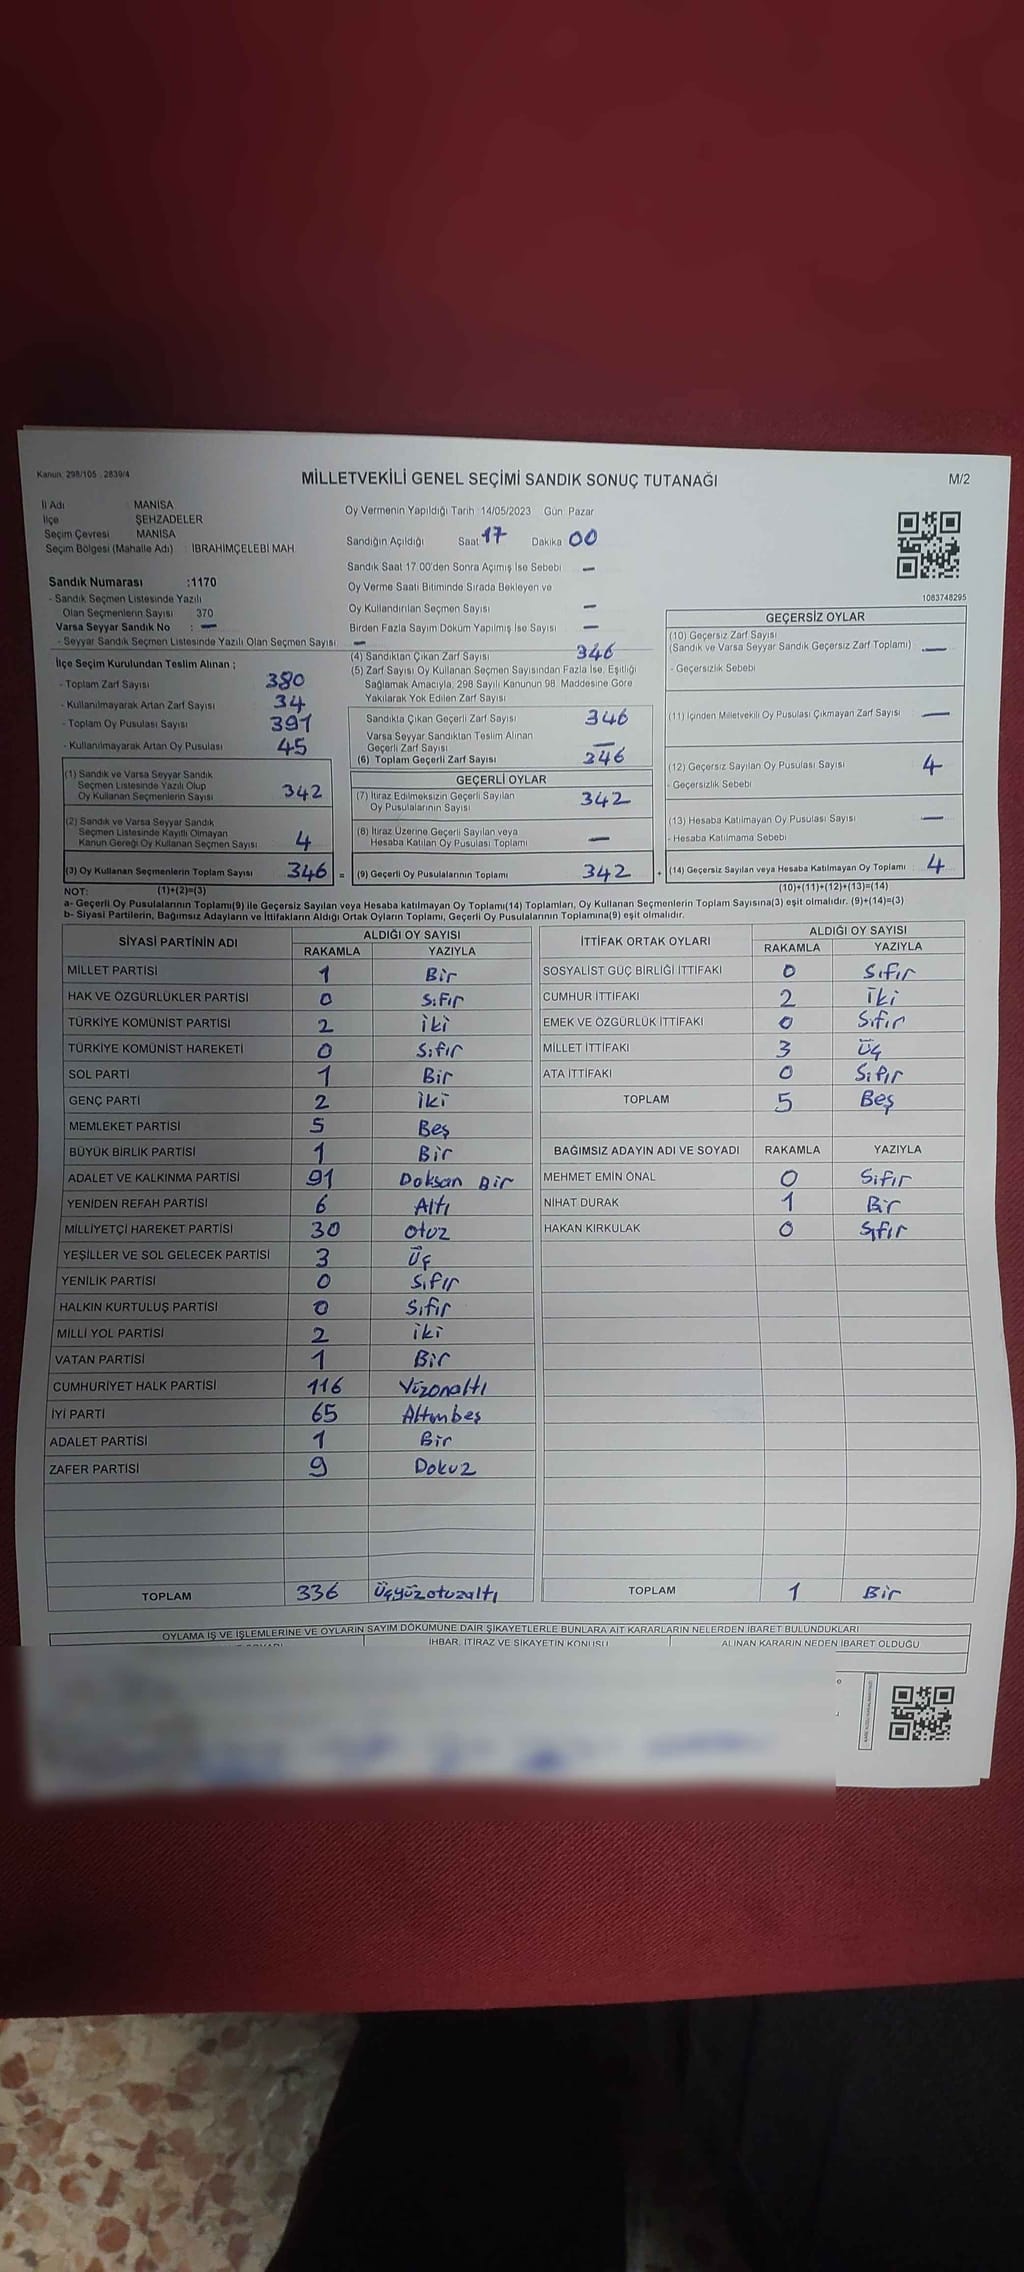 Kanun: 298/105 , 2839/4
MİLLETVEKİLİ GENEL SEÇİMİ SANDIK SONUÇ TUTANAĞI
M/2
İl Adı : MANİSA
İlçe : ŞEHZADELER
Seçim Çevresi : MANİSA
Seçim Bölgesi (Mahalle Adı) : İBRAHİMÇELEBİ MAH.
Oy Vermenin Yapıldığı Tarih 14/05/2023 Gün Pazar
Sandığın Açıldığı Saat 17 Dakika 00
Sandık Saat 17.00'den Sonra Açımış İse Sebebi —
Oy Verme Saati Bitiminde Sırada Bekleyen ve
Oy Kullandırılan Seçmen Sayısı —
Birden Fazla Sayım Döküm Yapılmış İse Sayısı —
1083748295
Sandık Numarası :1170
- Sandık Seçmen Listesinde Yazılı
Olan Seçmenlerin Sayısı 370
Varsa Seyyar Sandık No : —
- Seyyar Sandık Seçmen Listesinde Yazılı Olan Seçmen Sayısı —
İlçe Seçim Kurulundan Teslim Alınan ;
- Toplam Zarf Sayısı 380
- Kullanılmayarak Artan Zarf Sayısı 34
- Toplam Oy Pusulası Sayısı 391
- Kullanılmayarak Artan Oy Pusulası 45
(1) Sandık ve Varsa Seyyar Sandık
Seçmen Listesinde Yazılı Olup
Oy Kullanan Seçmenlerin Sayısı 342
(2) Sandık ve Varsa Seyyar Sandık
Seçmen Listesinde Kayıtlı Olmayan
Kanun Gereği Oy Kullanan Seçmen Sayısı 4
(3) Oy Kullanan Seçmenlerin Toplam Sayısı 346 =
(4) Sandıktan Çıkan Zarf Sayısı 346
(5) Zarf Sayısı Oy Kullanan Seçmen Sayısından Fazla İse, Eşitliği
Sağlamak Amacıyla, 298 Sayılı Kanunun 98. Maddesine Göre
Yakılarak Yok Edilen Zarf Sayısı
Sandıkla Çıkan Geçerli Zarf Sayısı 346
Varsa Seyyar Sandıktan Teslim Alınan
Geçerli Zarf Sayısı —
(6) Toplam Geçerli Zarf Sayısı 346
GEÇERLİ OYLAR
(7) İtiraz Edilmeksizin Geçerli Sayılan
Oy Pusulalarının Sayısı 342
(8) İtiraz Üzerine Geçerli Sayılan veya
Hesaba Katılan Oy Pusulası Toplamı —
(9) Geçerli Oy Pusulalarının Toplamı 342 +
GEÇERSİZ OYLAR
(10) Geçersiz Zarf Sayısı
(Sandık ve Varsa Seyyar Sandık Geçersiz Zarf Toplamı) —
- Geçersizlik Sebebi
(11) İçinden Milletvekili Oy Pusulası Çıkmayan Zarf Sayısı —
(12) Geçersiz Sayılan Oy Pusulası Sayısı 4
- Geçersizlik Sebebi
(13) Hesaba Katılmayan Oy Pusulası Sayısı —
- Hesaba Katılmama Sebebi
(14) Geçersiz Sayılan veya Hesaba Katılmayan Oy Toplamı 4
NOT: (1)+(2)=(3) (10)+(11)+(12)+(13)=(14)
a- Geçerli Oy Pusulalarının Toplamı(9) ile Geçersiz Sayılan veya Hesaba katılmayan Oy Toplamı(14) Toplamları, Oy Kullanan Seçmenlerin Toplam Sayısına(3) eşit olmalıdır. (9)+(14)=(3)
b- Siyasi Partilerin, Bağımsız Adayların ve İttifakların Aldığı Ortak Oyların Toplamı, Geçerli Oy Pusulalarının Toplamına(9) eşit olmalıdır.
SİYASİ PARTİNİN ADI ALDIĞI OY SAYISI
RAKAMLA YAZIYLA
MİLLET PARTİSİ 1 Bir
HAK VE ÖZGÜRLÜKLER PARTİSİ 0 Sıfır
TÜRKİYE KOMÜNİST PARTİSİ 2 İki
TÜRKİYE KOMÜNİST HAREKETİ 0 Sıfır
SOL PARTİ 1 Bir
GENÇ PARTİ 2 İki
MEMLEKET PARTİSİ 5 Beş
BÜYÜK BİRLİK PARTİSİ 1 Bir
ADALET VE KALKINMA PARTİSİ 91 Doksan Bir
YENİDEN REFAH PARTİSİ 6 Altı
MİLLİYETÇİ HAREKET PARTİSİ 30 Otuz
YEŞİLLER VE SOL GELECEK PARTİSİ 3 Üç
YENİLİK PARTİSİ 0 Sıfır
HALKIN KURTULUŞ PARTİSİ 0 Sıfır
MİLLİ YOL PARTİSİ 2 İki
VATAN PARTİSİ 1 Bir
CUMHURİYET HALK PARTİSİ 116 Yüzonaltı
İYİ PARTİ 65 Altmbeş
ADALET PARTİSİ 1 Bir
ZAFER PARTİSİ 9 Dokuz
TOPLAM 336 Üçyüzotuzaltı
İTTİFAK ORTAK OYLARI ALDIĞI OY SAYISI
RAKAMLA YAZIYLA
SOSYALİST GÜÇ BİRLİĞİ İTTİFAKI 0 Sıfır
CUMHUR İTTİFAKI 2 İki
EMEK VE ÖZGÜRLÜK İTTİFAKI 0 Sıfır
MİLLET İTTİFAKI 3 Üç
ATA İTTİFAKI 0 Sıfır
TOPLAM 5 Beş
BAĞIMSIZ ADAYIN ADI VE SOYADI RAKAMLA YAZIYLA
MEHMET EMİN ÖNAL 0 Sıfır
NİHAT DURAK 1 Bir
HAKAN KIRKULAK 0 Sıfır
TOPLAM 1 Bir
OYLAMA İŞ VE İŞLEMLERİNE VE OYLARIN SAYIM DÖKÜMÜNE DAİR ŞİKAYETLERLE BUNLARA AİT KARARLARIN NELERDEN İBARET BULUNDUKLARI
İHBAR, İTİRAZ VE ŞİKAYETİN KONUSU ALINAN KARARIN NEDEN İBARET OLDUĞU